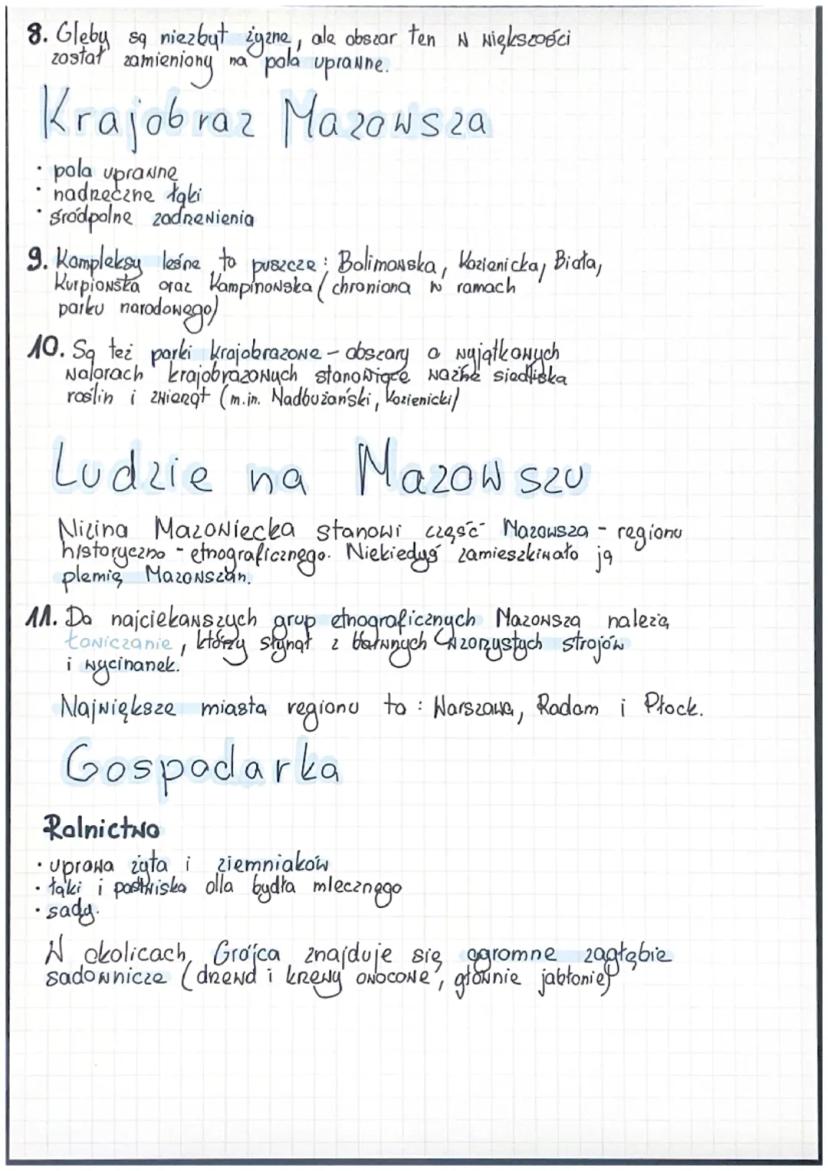 8. Gleby są niezbyt żyzne, ale obszar ten w większości
został zamieniony na pola uprawne.
Krajobraz Mazowsza
• pola uprawne
• nadrzeczne łąki
• śródpolne zadrzewienia
9. Kompleksy leśne to puszcze: Bolimowska, Kozienicka, Biała,
Kurpiowska oraz Kampinowska (chroniona w ramach
parku narodowego)
10. Są też parki krajobrazowe - obszary o wyjątkowych
walorach krajobrazowych stanowiące ważne siedliska
roślin i zwierząt (m.in. Nadbużański, Kozienicki)
Ludzie na Mazowszu
Nizina Mazowiecka stanowi część Mazowsza - regionu
historyczno - etnograficznego. Niekiedyś zamieszkiwało ją
plemię Mazowszan.
11. Do najciekawszych grup etnograficznych Mazowsza należą
Łowiczanie, którzy słynął z barwnych wzorzystych strojów
i wycinanek.
Największe miasta regionu to: Warszawa, Radom i Płock.
Gospodarka
Rolnictwo
• uprawa żyta i ziemniaków
• łąki i pastwiska dla bydła mlecznego
• sady.
W okolicach Grójca znajduje się ogromne zagłębie
sadownicze (drzewa i krzewy owocowe, głównie jabłonie)